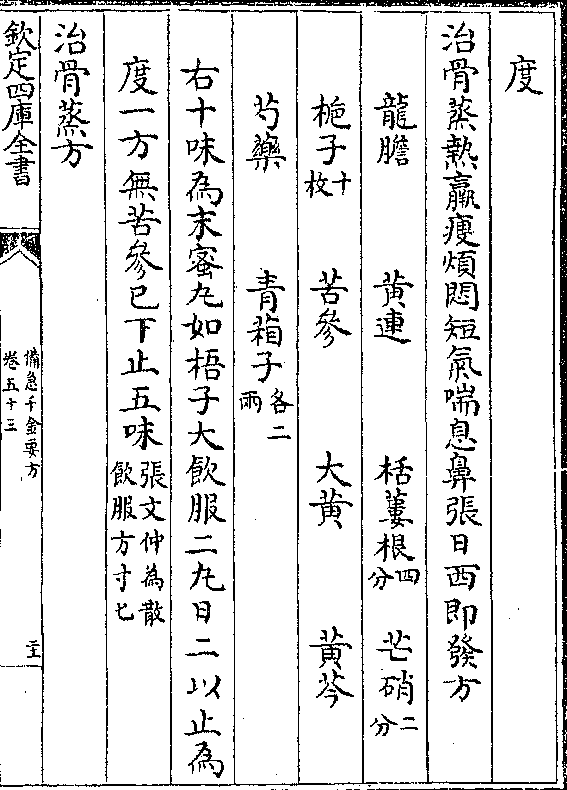 度
治骨蒸熱羸瘦煩悶短氣喘息鼻張日西即發方
龍膽　黃連　栝蔞根四分　芒硝二分
梔子十枚　苦參　大黃　黃芩
芍藥　青葙子各二兩
右十味為末蜜丸如梧子大飲服二丸日二以止為
度一方無苦參已下止五味張文仲為散飲服方寸匕
治骨蒸方
欽定四庫全書
備急千金要方
卷五十三